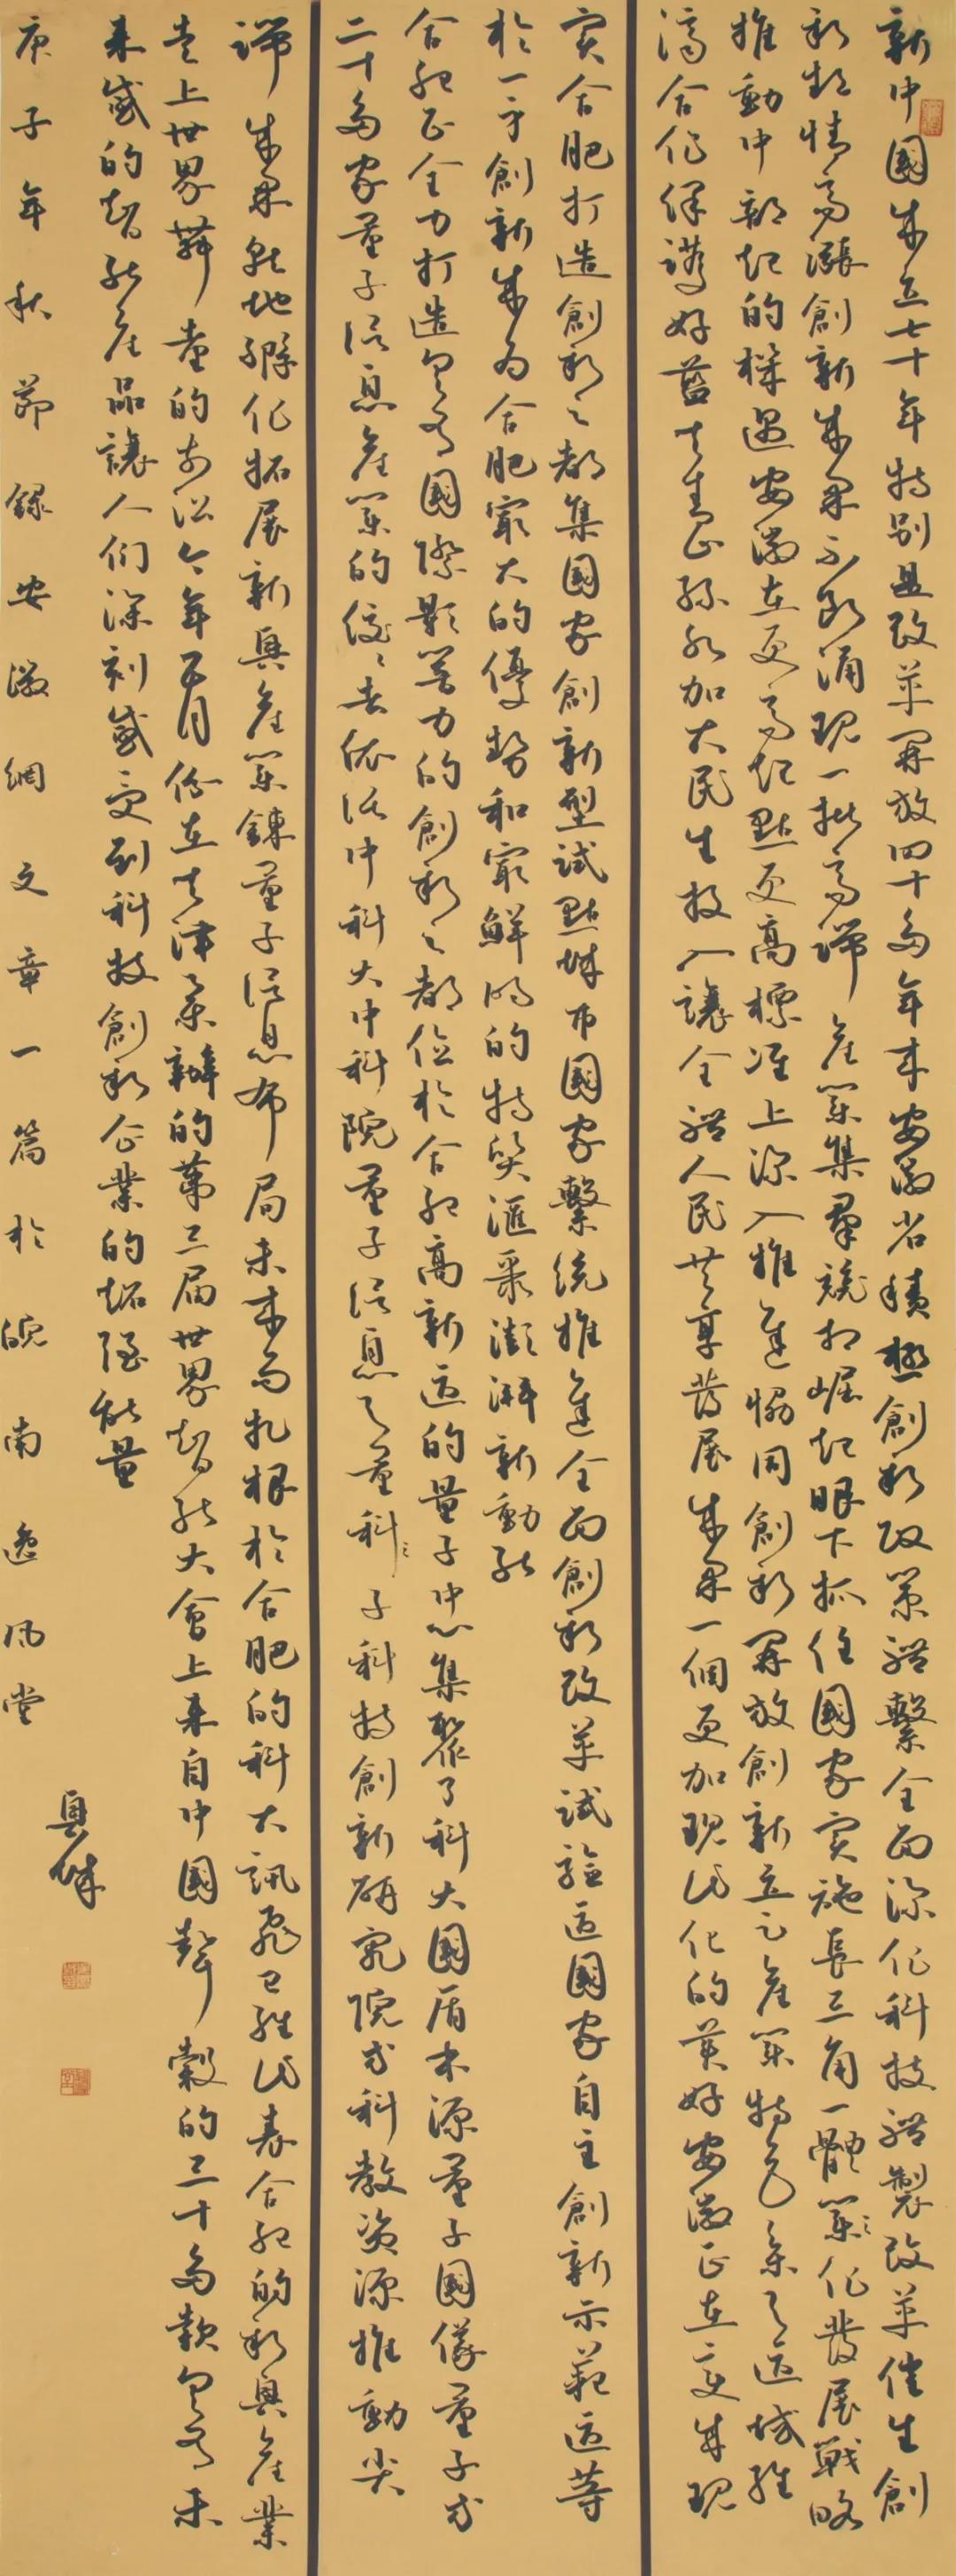 新中國成立七十年特別是改革開放四十多年來安徽省積極創新政策體繫全面深化科技體製改革催生創
新熱情高漲創新成果不斷涌現一批高端產業集群競相崛起眼下抓住國家實施長三角一體化發展戰略
推動中部崛起的機遇安徽在更高起點更高標準上深入推進協同創新開放創新立足產業特色參與區域經
濟合作保護好藍天青山綠水加大民生投入讓全體人民共享發展成果一個更加現代化的美好安徽正在變成現
實合肥打造創新之都集國家創新型試點城市國家繫統推進全面創新改革試驗區國家自主創新示範區等
於一身創新成為合肥最大的優勢和最鮮明的特質滙聚澎湃新動能
合肥正全力打造具有國際影響力的創新之都位於合肥高新區的量子中心集聚了科大國盾本源量子國儀量子等
二十多家量子信息產業的佼佼者依託中科大中科院量子信息與量子科技創新研究院等科教資源推動尖
端成果就地孵化拓展新興產業鏈量子信息布局未來而扎根於合肥的科大訊飛已經代表合肥的新興產業
走上世界舞臺的前沿今年五月份在天津舉辦的第三屆世界智能大會上來自中國聲穀的三十多款具有未
來感的智能產品讓人们深刻感受到科技創新企業的超强能量
庚子年秋節錄安徽網文章一篇於皖南逸風堂